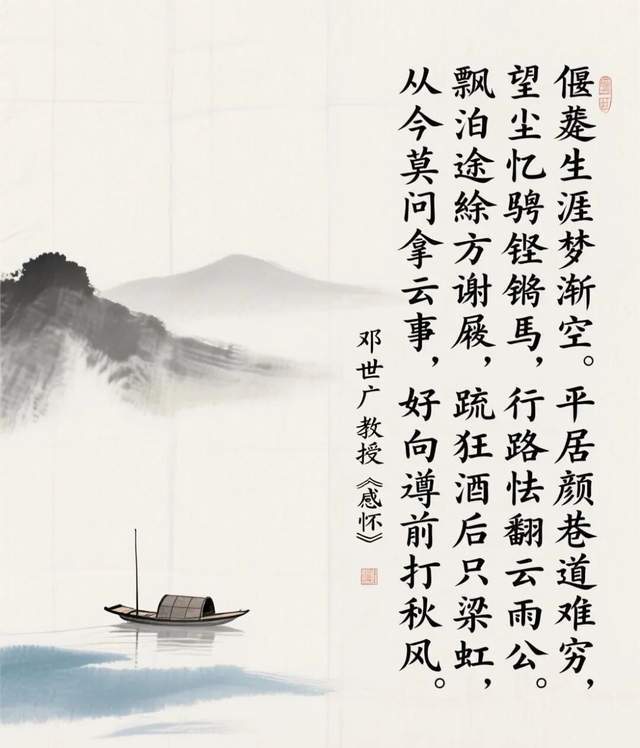 偃生涯梦渐空。平居颜巷道难穷，
望尘忆骋铿锵馬，行路怯翻云雨公。
飘泊途方谢屐，疏狂酒后只梁虹，
从今莫问拿云事，好向遵前打秋风。
邓世广教授《感怀》